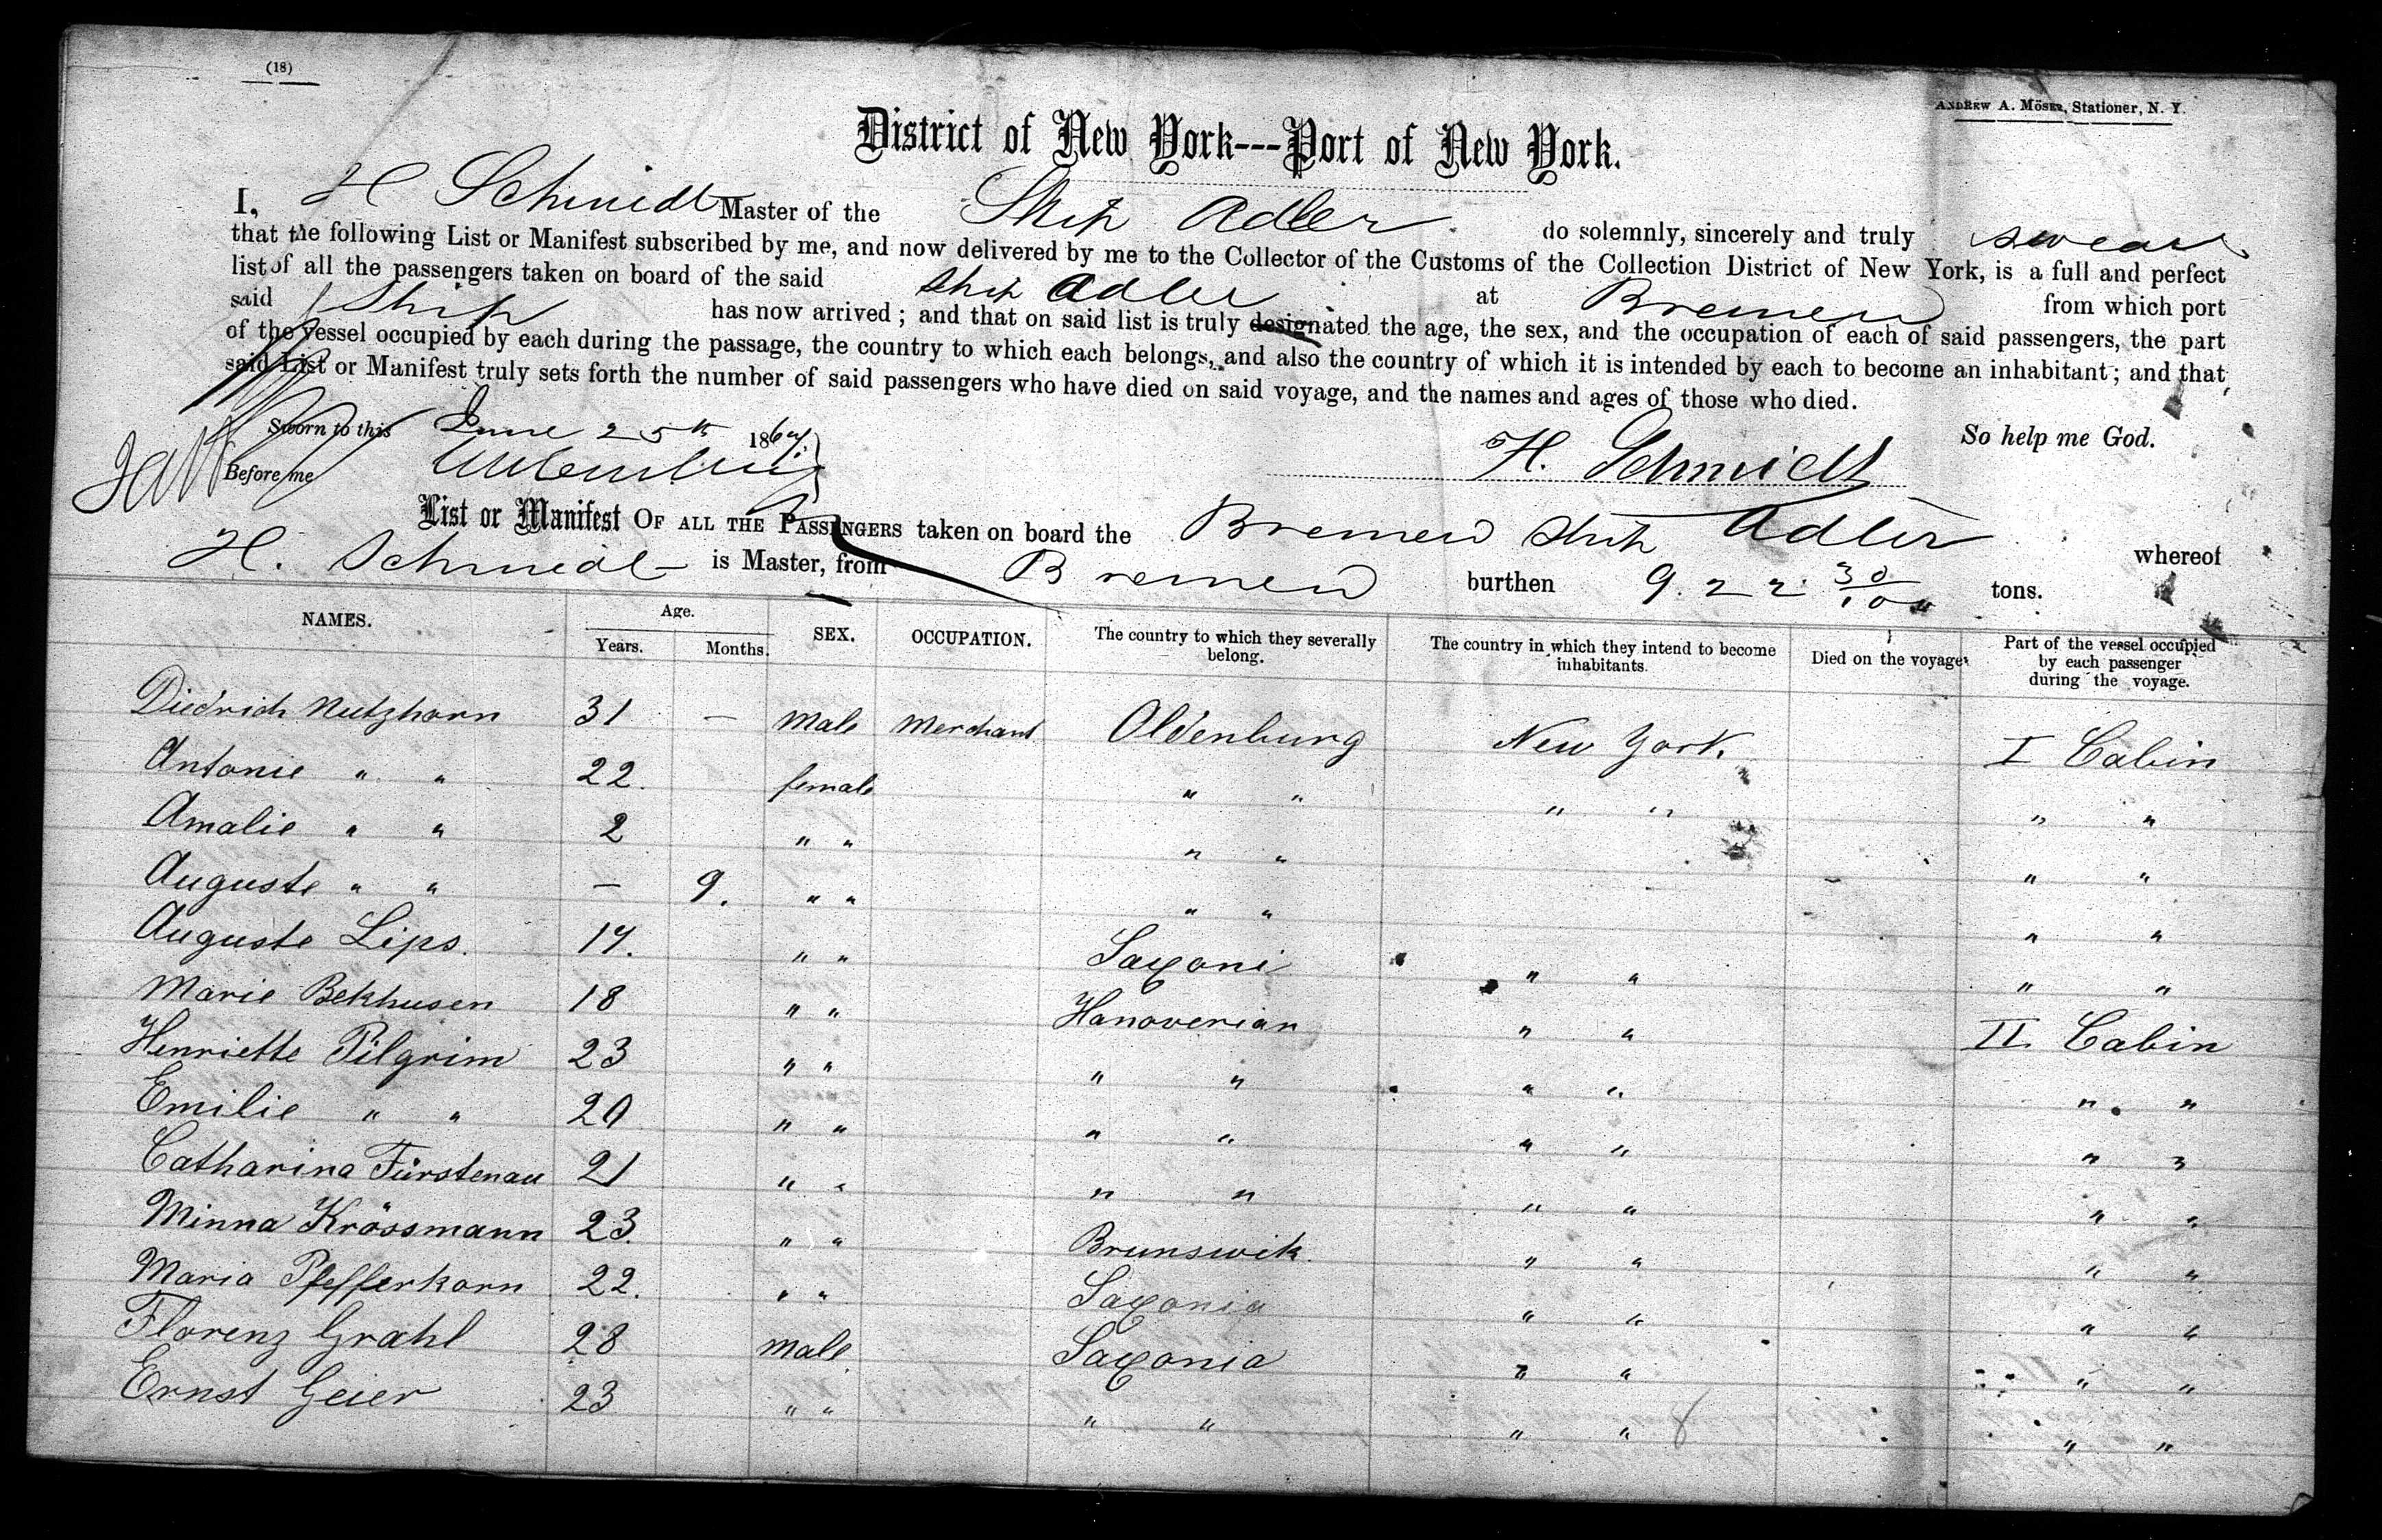 (18)
ANDREW A. MÖSER, Stationer, N. Y.
District of New York---Port of New York.
I, H Schmidt Master of the Ship Adler do solemnly, sincerely and truly swear
that the following List or Manifest subscribed by me, and now delivered by me to the Collector of the Customs of the Collection District of New York, is a full and perfect
list of all the passengers taken on board of the said Ship Adler at Bremen from which port
said Ship has now arrived ; and that on said list is truly designated the age, the sex, and the occupation of each of said passengers, the part
of the vessel occupied by each during the passage, the country to which each belongs, and also the country of which it is intended by each to become an inhabitant ; and that
said List or Manifest truly sets forth the number of said passengers who have died on said voyage, and the names and ages of those who died.
Sworn to this June 25th 186 So help me God.
Before me H. Schmidt
List or Manifest OF ALL THE PASSENGERS taken on board the Bremen Ship Adler whereof
H. Schmidt is Master, from Bremen burthen 922 30/100 tons.
NAMES. Age. Years. Months. SEX. OCCUPATION. The country to which they severally belong. The country in which they intend to become inhabitants. Died on the voyage. Part of the vessel occupied by each passenger during the voyage.
Diedrich Nutzhorn 31 — Male Merchant Oldenburg New York. I Cabin
Antonie " " 22. female " " " " " "
Amalie " " 2 " " " " " "
Auguste " " — 9. " " " " " "
Auguste Lips. 17. " " Saxoni " " " "
Marie Bekhusen 18 " " Hanoverian " " II Cabin
Henriette Pilgrim 23 " " " " " " " "
Emilie " " 20 " " " " " " " "
Catharina Fürstenau 21 " " " " " " " "
Minna Krössmann 23. " " Brunswik " " " "
Maria Pfefferkorn 22. " " Saxonia " " " "
Florenz Grahl 28 Male Saxonia " " " "
Ernst Geier 23 " " " " " " " "